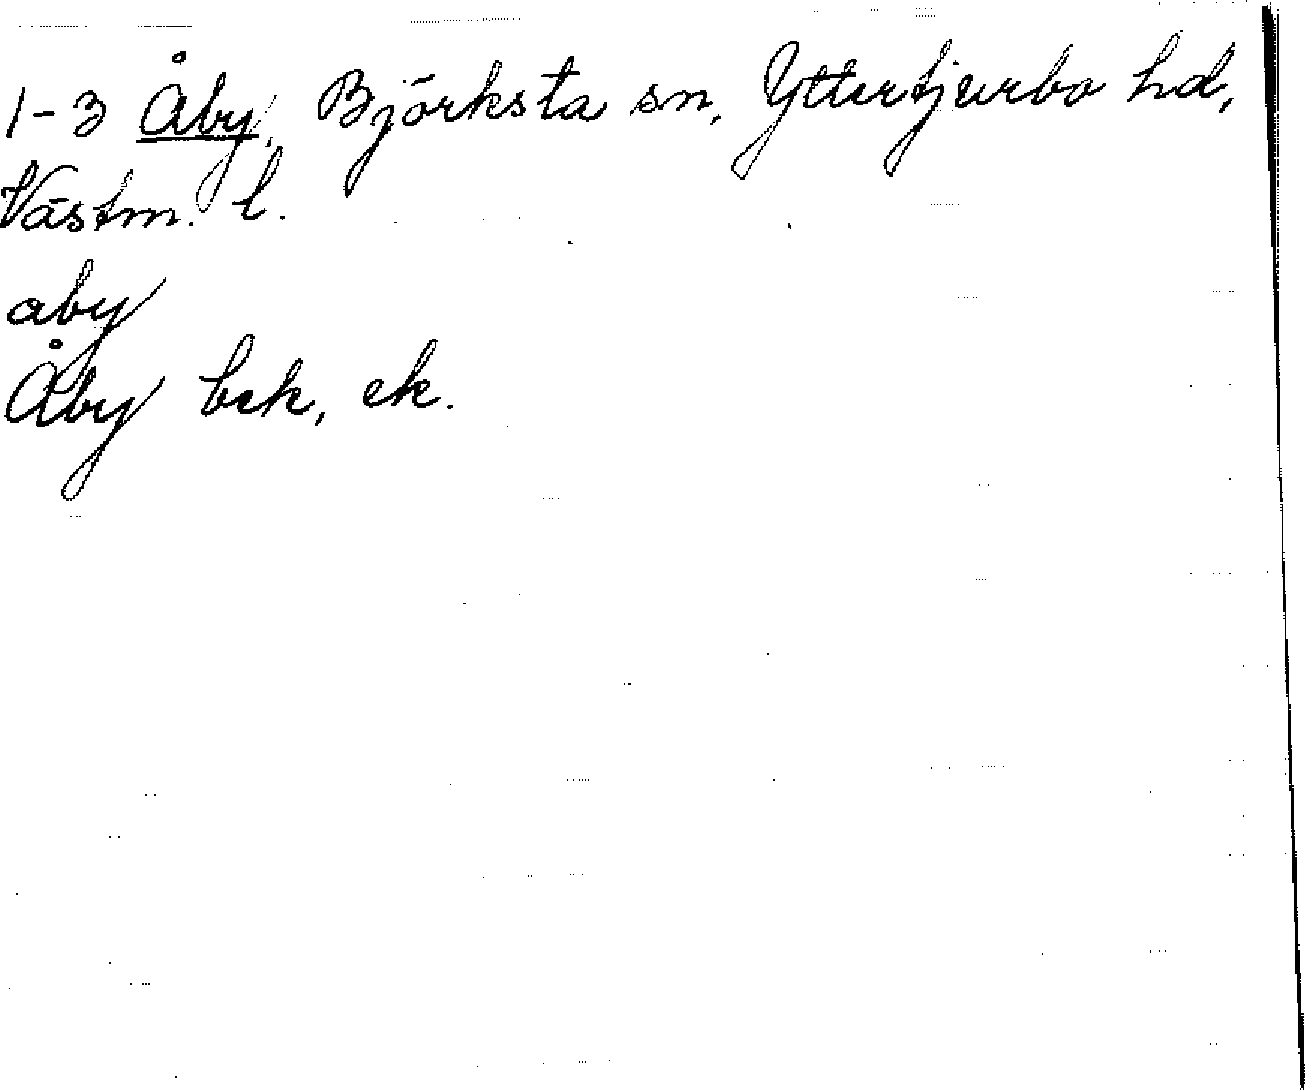 1-3 Åby, Björksta sn, Yttertjurbo hd,
Västm. l.
aby
Åby bek, ek.